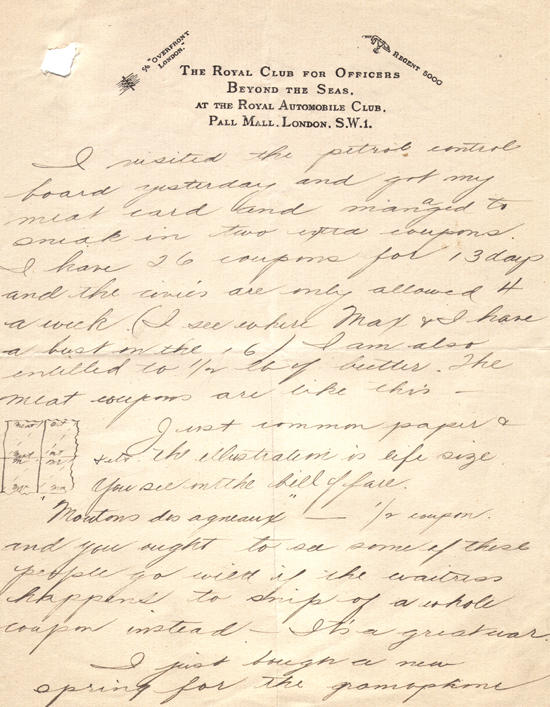 c/o "OVERFRONT
LONDON."
REGENT 5000
THE ROYAL CLUB FOR OFFICERS
BEYOND THE SEAS.
AT THE ROYAL AUTOMOBILE CLUB,
PALL MALL. LONDON. S.W.1.
I visited the petrol control
board yesterday and got my
meat card and managed to
sneak in two extra coupons.
I have 26 coupons for 13 days
and the civies are only allowed 4
a week. (I see where Max & I have
a bust on the 16) I am also
entitled to 1/2 lb of butter. The
meat coupons are like this –
Just common paper &
the illustration is life size
You see on the bill of fare.
"Moutons des agneaux" — 1/2 coupon.
and you ought to see some of those
people go wild if the waitress
happens to snip of a whole
coupon instead – It's a great war.
I just bough a new
spring for the gramophone